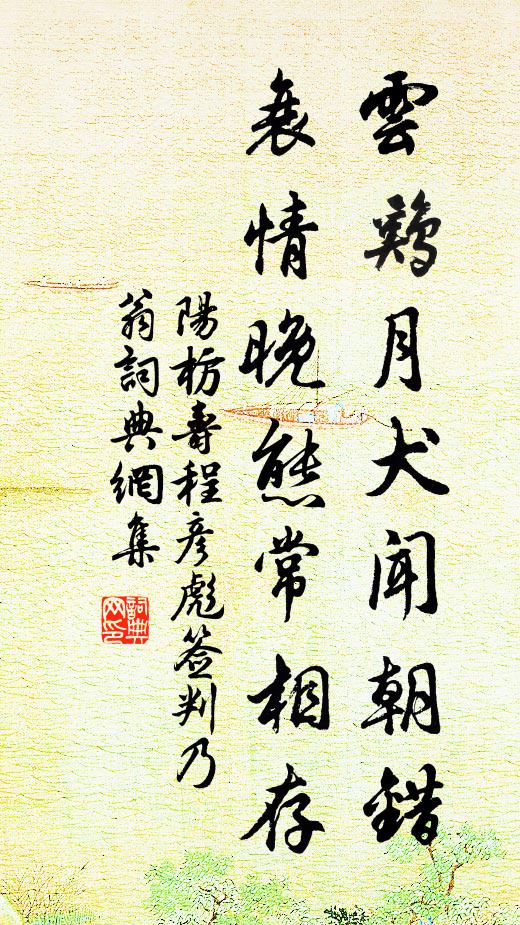 雲鷄月犬聞朝錯
衰情晚態常相存
陽枋壽程彥彪簽判乃
翁詞典網集
詞典
网印